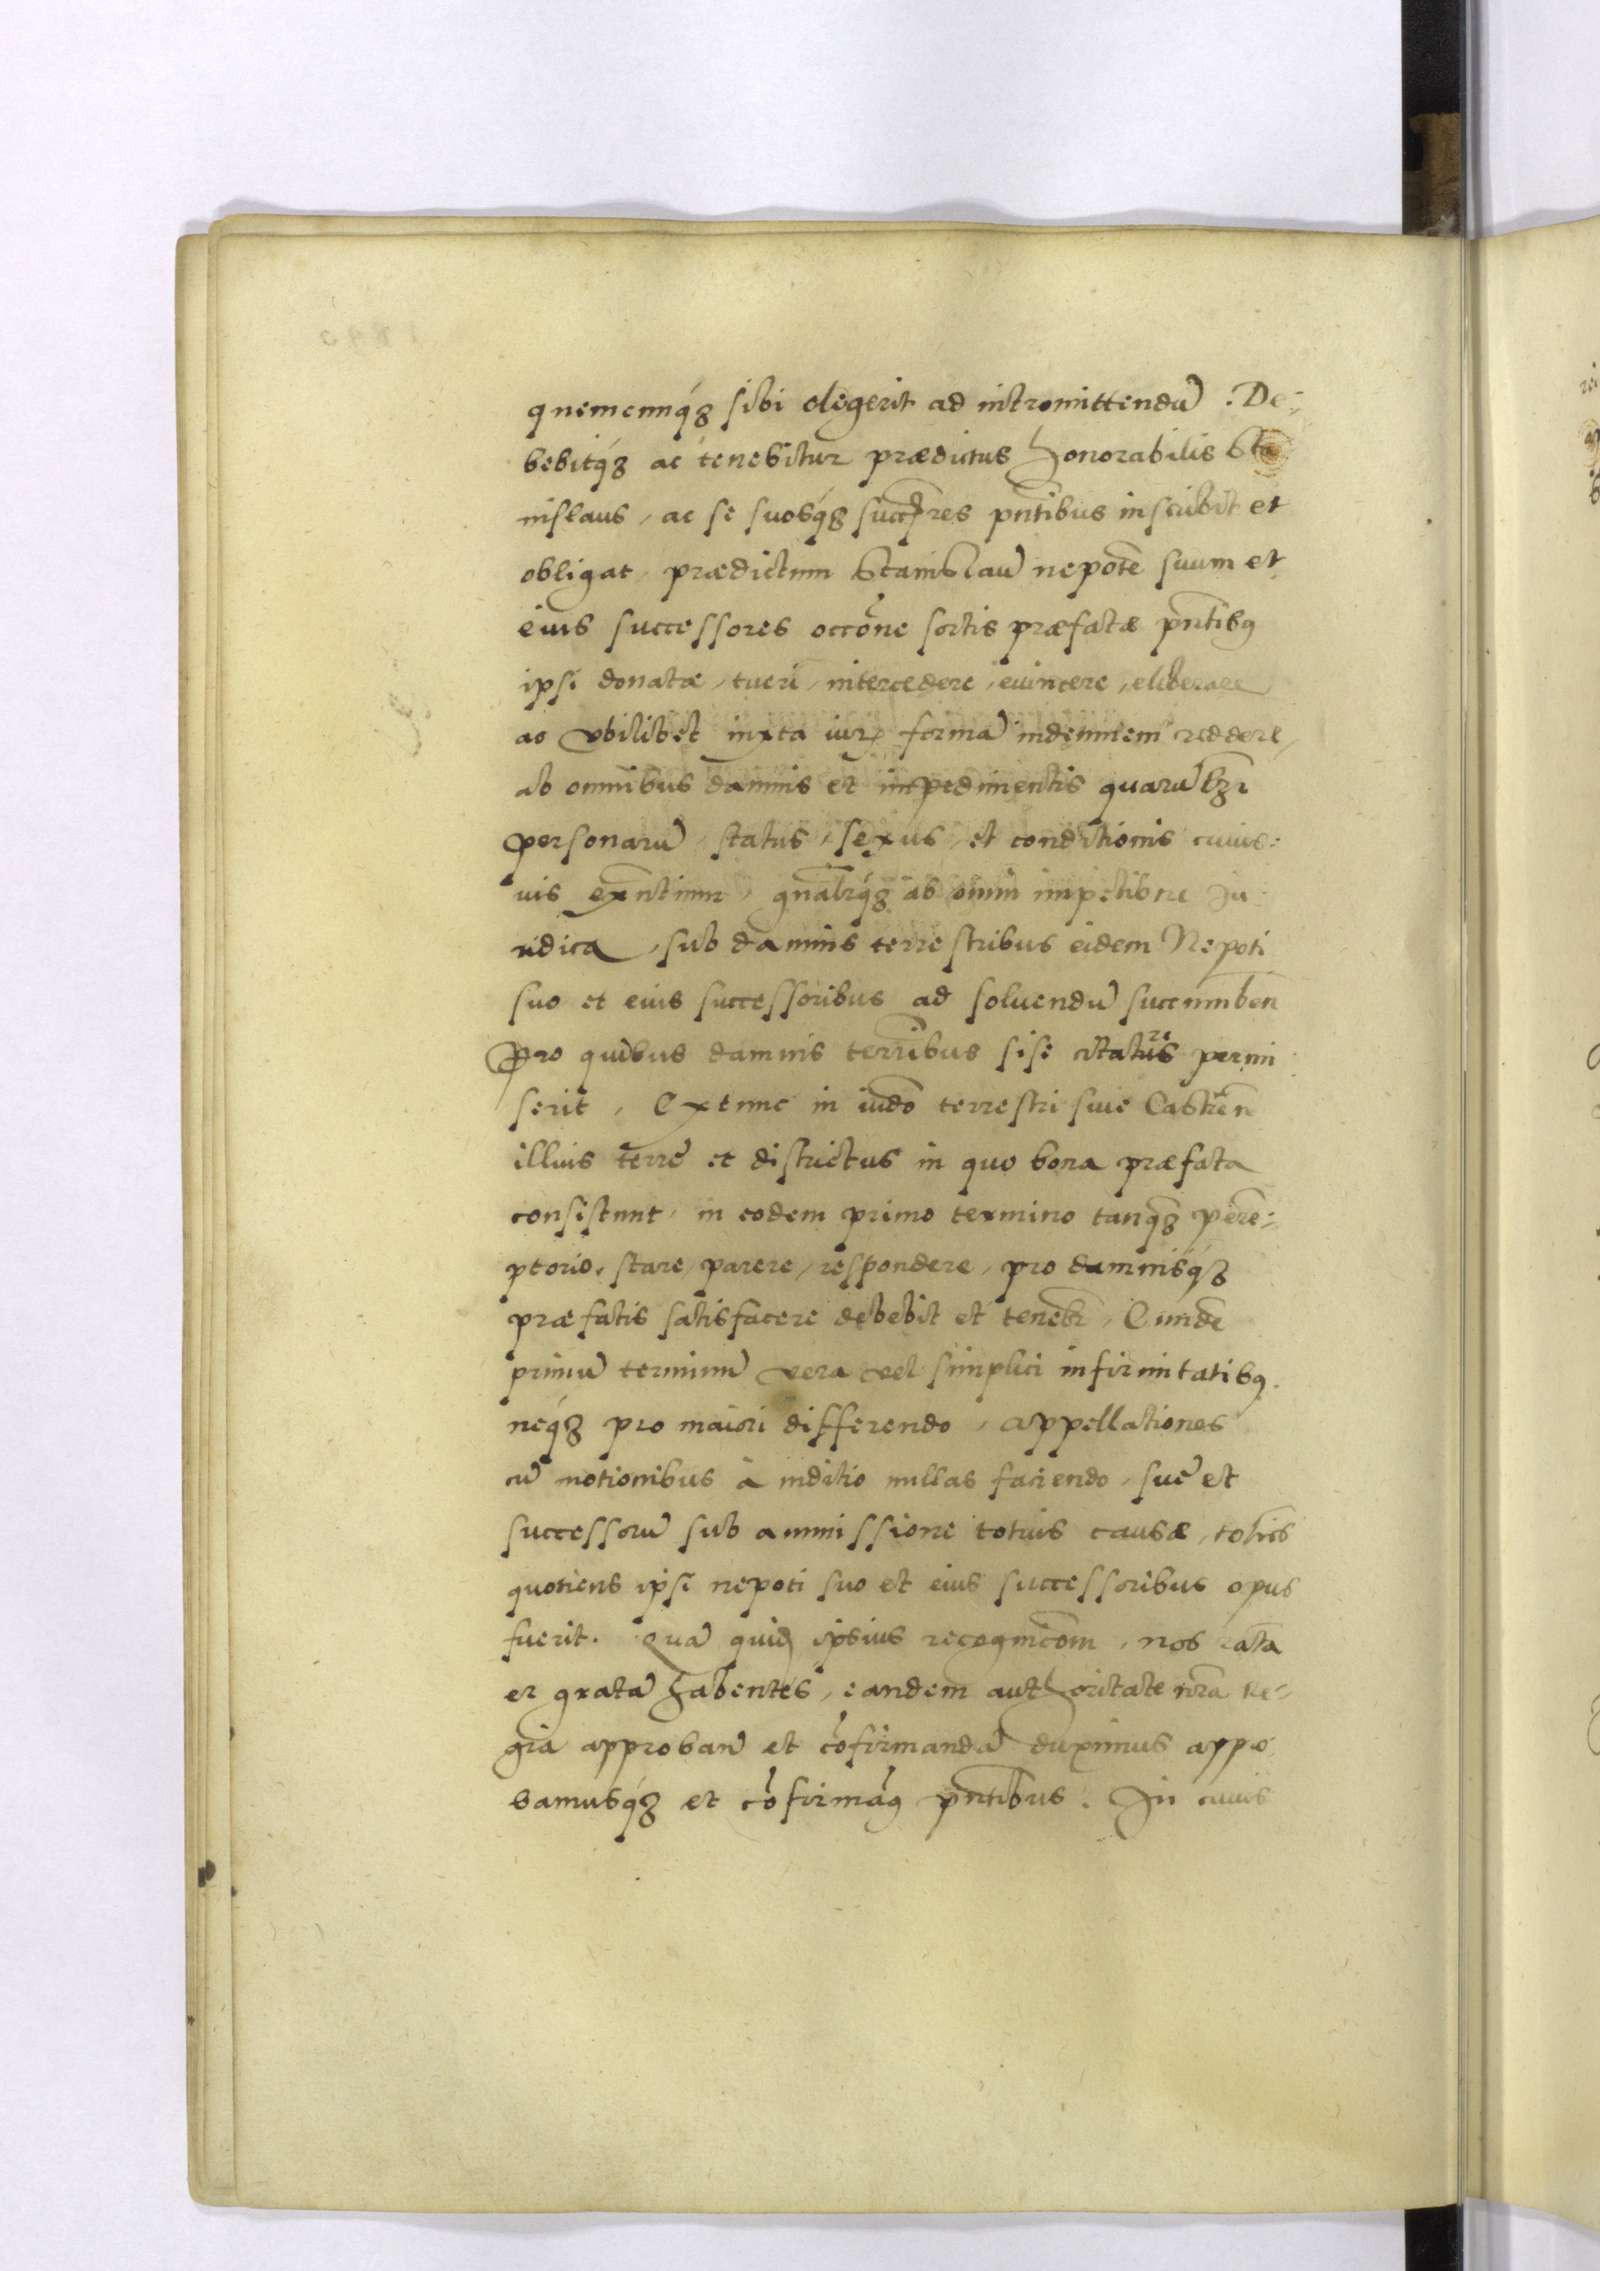 quemcunq́ꝫ sibi elegerit ad intromittendū. De-
bebitq́ꝫ ac tenebitur prædictus honorabilis Sta
nislaus, ac se suosq́ꝫ succr̄es pn̄tibus inscribit et
obligat, prædictum Stanislaū nepotē suum et
eius successores occōne sortis præfatæ pn̄tibꝯ
ipsi donatæ, tueri, intercedere, euincere, eliberare
ac vbilibet iuxta iurꝭ formā indemnem reddere,
ab omnibus damnis et impedimentis quarūlꝫt
personarū, status, sexus, et conditionis cuius-
uis exn̄tium, gn̄alrq́ꝫ ab omni impetitione Ju
ridica, sub damnis terrestribus eidem Nepoti
suo et eius successoribus ad soluendū succumben̄
Pro quibus damnis terrībus si se citatus re permi
serit, Extunc in iud̄o terrestri siue Castren̄
illius terrę et districtus in quo bona præfata
consistunt, in eodem primo termino tanq̄ꝫ perē-
ptorio, stare, parere, respondere, pro damnisq́ꝫ
præfatis satisfacere debebit et tenebr̄, Eundē
primū terminū vera vel simplici infirmitatibꝯ
neq́ꝫ pro maiori differendo, appellationes
cū motionibus à iuditio nullas faciendo, suę et
successorū sub ammissione totius causæ, toties
quotiens ipsi nepoti suo et eius successoribus opus
fuerit. Quā quid̄ ipsius recognicōm, nos ratā
et gratā habentes, eandem authoritate nrā Re-
gia approban̄ et cōfirmandā duximus appro
bamusq́ꝫ et cōfirmāꝯ pn̄tibus. In cuius